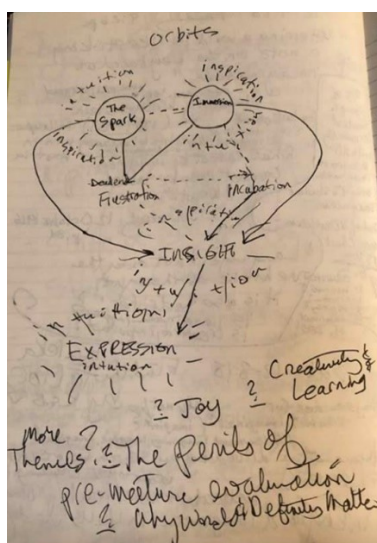 Orbits
intuition
inspiration
The
Spark
Immersion
inspiration
intuition
Frustration
Incubation
inspiration
INSIGHT
intuition
EXPRESSION
intuition
& Joy
& Creativity &
Learning
More ?
Themes.
& The Perils of
pre-mature evaluation
& Why Words & Definitions Matter